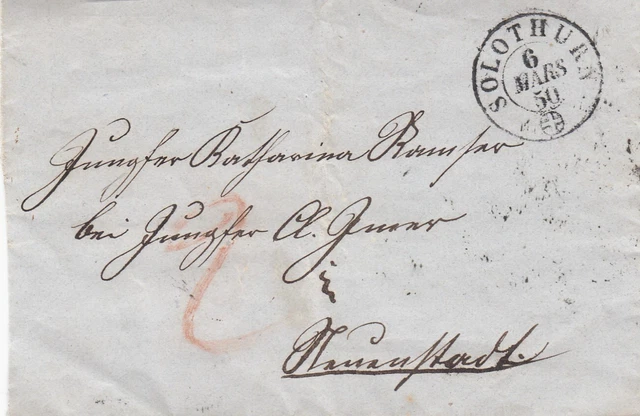 SOLOTHURN
6
MARS
50
Jungfer Katharina Ramser
bei Jungfer Cl. Imer
in
Neuenstadt.
2